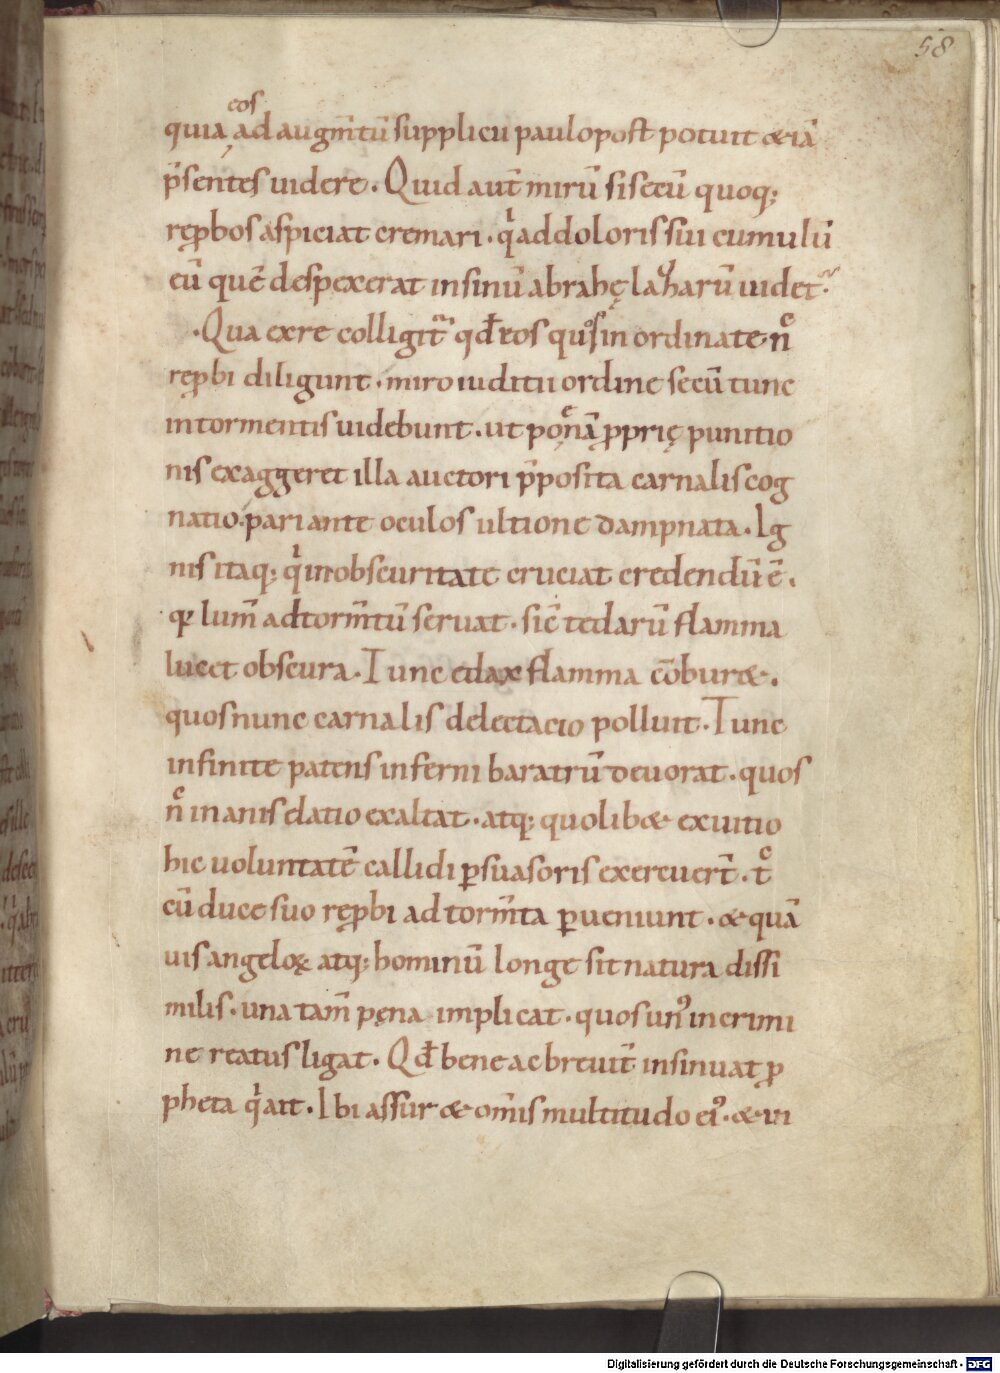 58
eos
quia, ad augm̄tū supplicii paulopost potuit & iā
p̄sentes uidere. Quid aut̄ mirū si secū quoq;
rep̱bos aspiciat cremari. qͥ ad doloris sui cumulū
eū quē despexerat in sinū abrahę lazarū uidet.
Qua ex re colligit̄ qđ eos quos inordinate nc̄
rep̱bi diligunt. miro iuditii ordine secū tunc
in tormentis uidebunt. ut poenā p̱prię punitio
nis exaggeret illa auctori p̄posita carnalis cog
natio. pari ante oculos ultione dampnata. Ig
nis itaq; qͥ in obscuritate cruciat credendū ē.
qꝛ lum̄ ad torm̄tū seruat. sic̄ tedarū flamma
lucet obscura. Tunc edax flamma cōbur&.
quos nunc carnalis delectacio polluit. Tunc
infinite patens inferni baratrū deuorat. quos
nͨ inanis elatio exaltat. atq; quolib& ex uitio
hic uoluntatē callidi ꝑsuasoris exercuert̄. tͨ
cū duce suo rep̱bi ad torm̄ta ꝑueniunt. & quā
uis angeloꝝ atq; hominū longe sit natura dissi
milis. una tam̄ pęna implicat. quos unꝰ in crimi
ne reatus ligat. Qđ bene ac breuit̄ insinuat p̱
pheta qͥ ait. Ibi assur & om̄is multitudo eiꝰ. & in
Digitalisierung gefördert durch die Deutsche Forschungsgemeinschaft - DFG